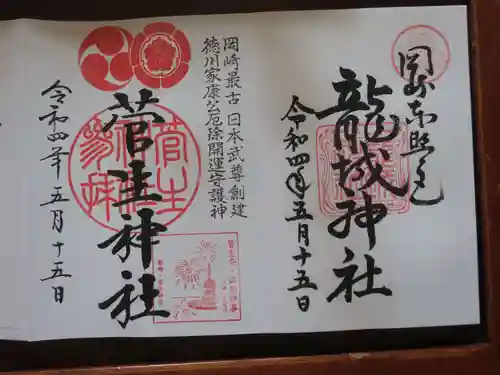 岡崎東照宮
龍城神社
令和四年五月十五日
岡崎最古 日本武尊創建
徳川家康公厄除開運守護神
菅生神社
令和四年五月十五日